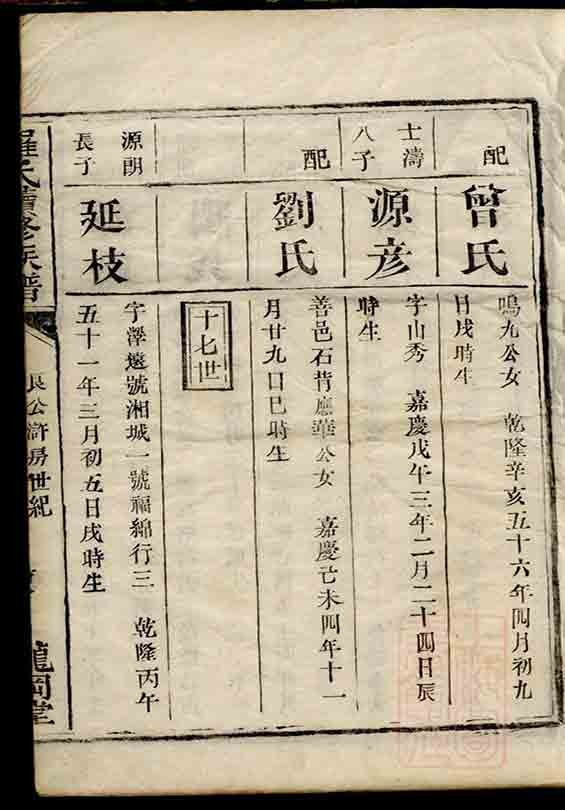 配
曾氏
鳴九公女　乾隆辛亥五十六年四月初九
日戌時生
士濤
八子
源彦
字山秀　嘉慶戊午三年二月二十四日辰
時生
配
劉氏
善邑石背應華公女　嘉慶己未四年十一
月廿九日巳時生
十七世
源朗
長子
延枝
字澤遠號湘城一號福綿行三　乾隆丙午
五十一年三月初五日戌時生
羅氏續修族譜
良公滸房世紀
龍岡堂